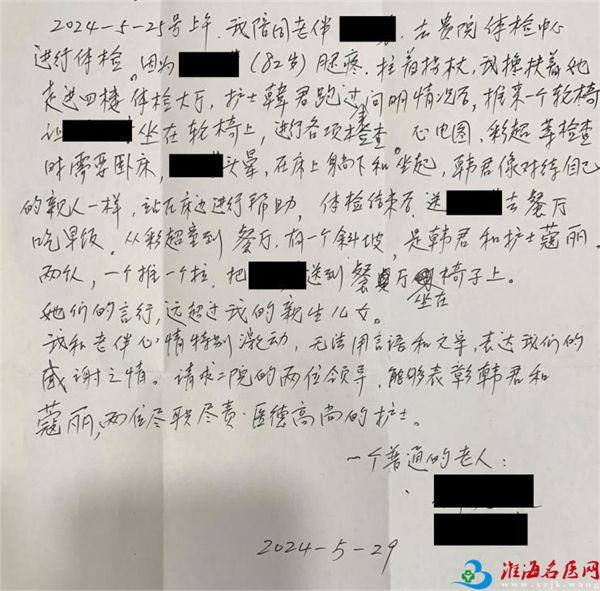 2024-5-25号上午,我陪同老伴 去贵院体检中心
进行体检。因为 (82岁)腿疼,拄着拐杖,我搀扶着她
走进四楼体检大厅,护士韩君跑过来问明情况后,推来一个轮椅
让 坐在轮椅上,进行各项检查 心电图,彩超等检查
时需要卧床, 头晕,在床上躺下和坐起,韩君像对待自己
的亲人一样,站在床边进行帮助,体检结束后,送 去餐厅
吃早饭。从彩超室到餐厅,有一个斜坡,是韩君和护士蔻丽
两人,一个推一个拉,把 送到餐厅坐在椅子上。
她们的言行,远超过我的亲生儿女。
我和老伴心情特别激动,无法用言语和文字,表达我们的
感谢之情。请求二院的两位领导,能够表彰韩君和
蔻丽,两位尽职尽责·医德高尚的护士。
一个普通的老人:
2024-5-29
淮海名医网
www.xzjk.wang